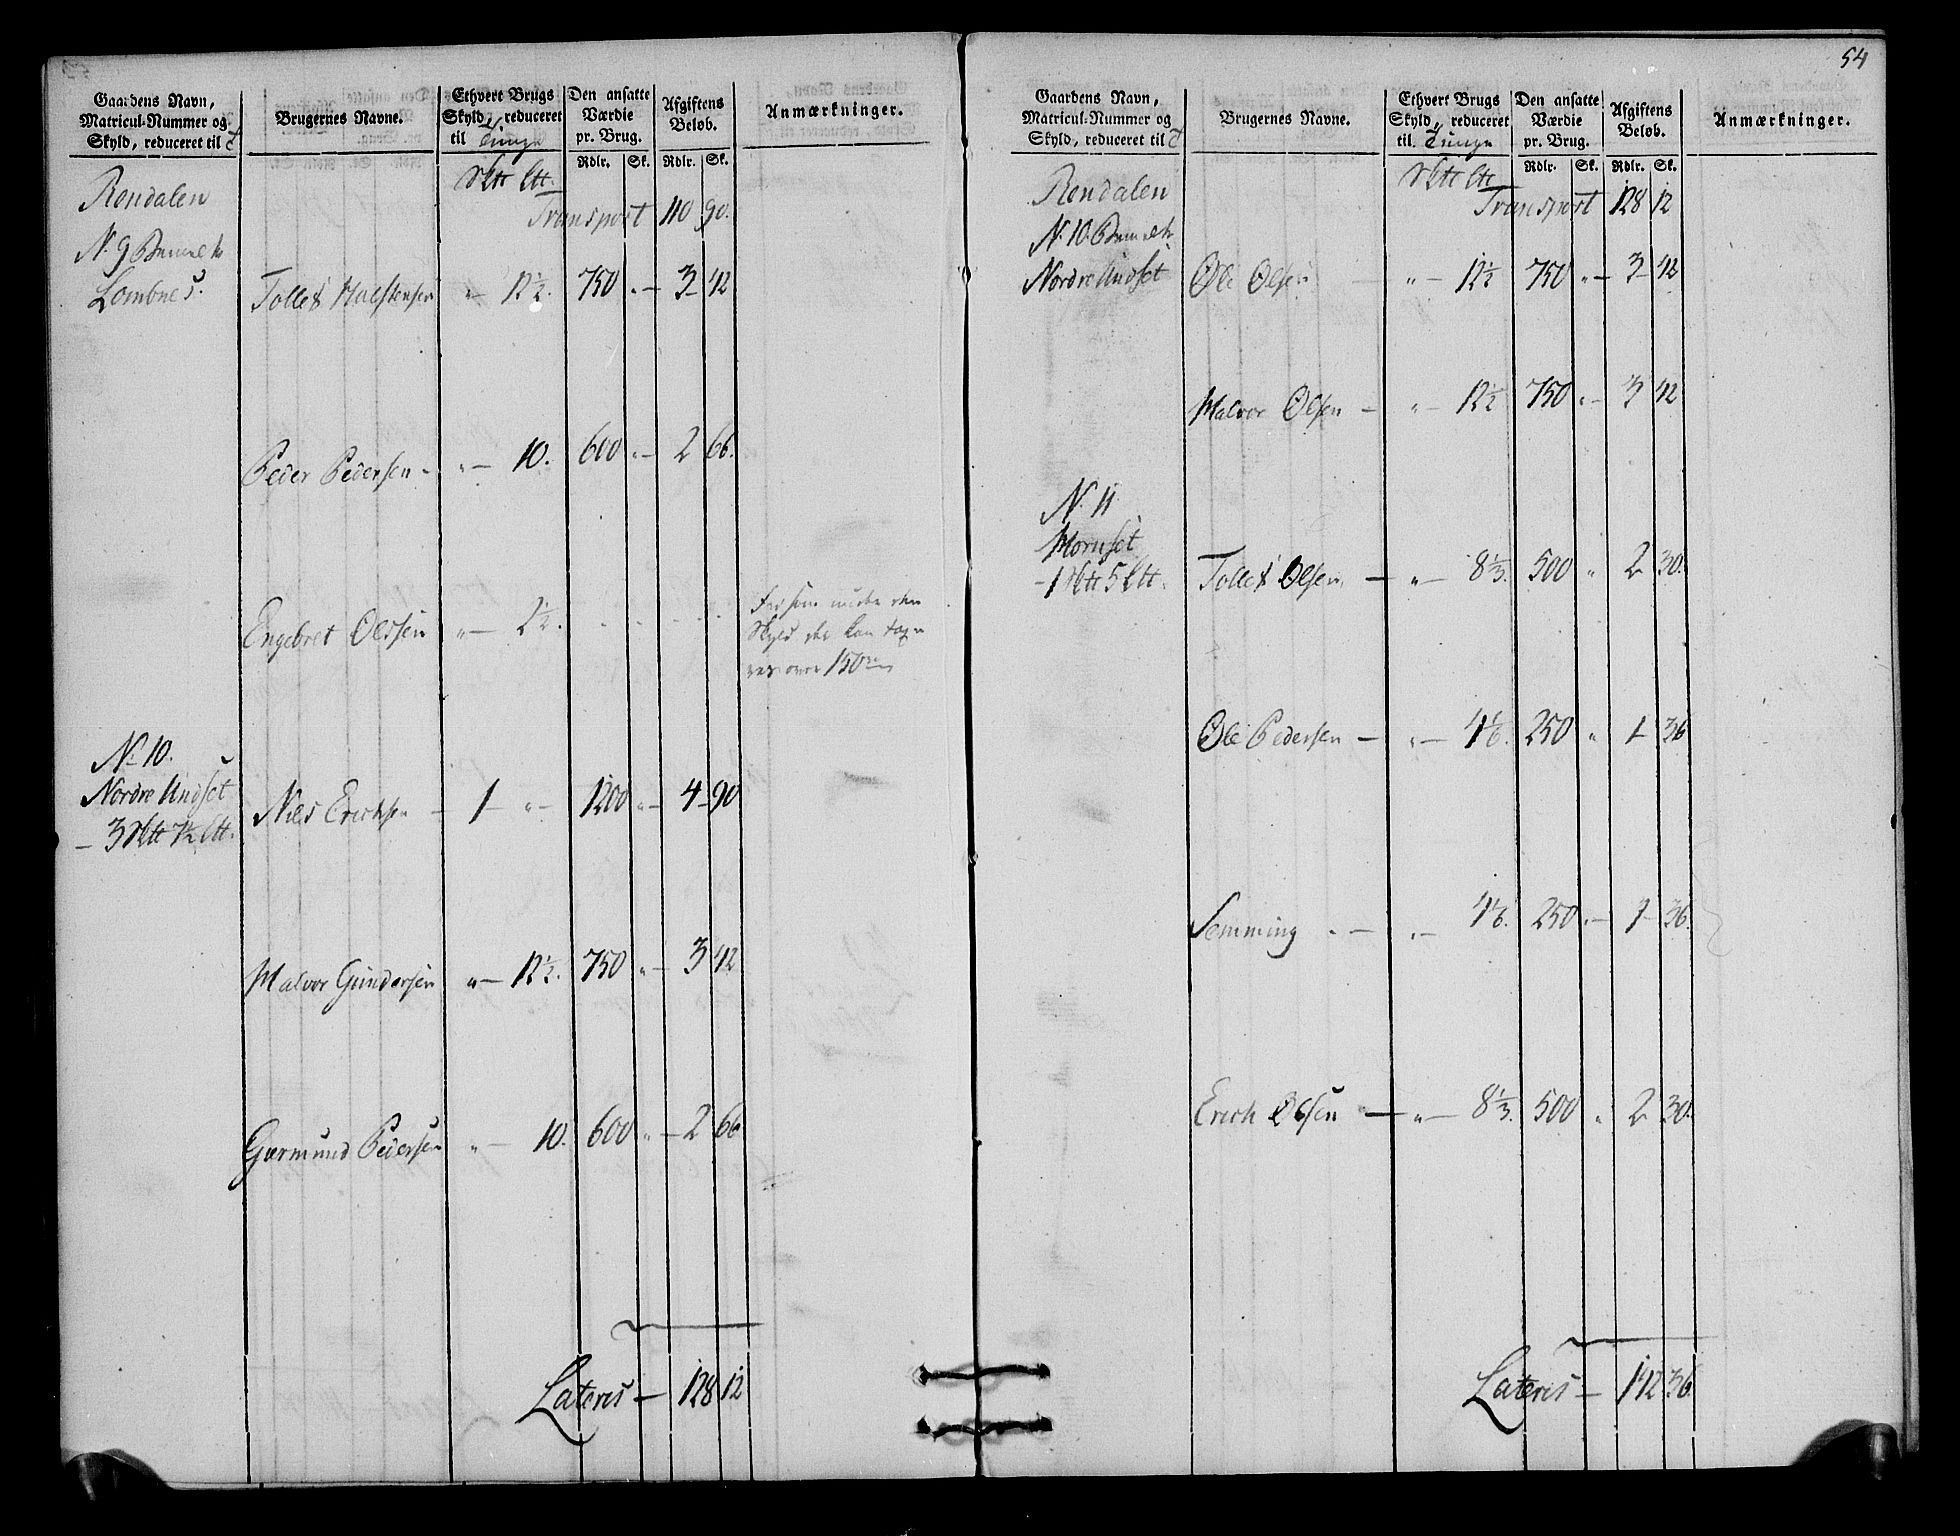 54
Gaardens Navn,
Matricul-Nummer og
Skyld, reduceret til
Brugernes Navne.
Ethvert Brugs
Skyld, reduceret
til Tunge
Den ansatte
Værdie
pr. Brug.
Rdlr. Sk.
Afgiftens
Beløb.
Rdlr. Sk.
Anmærkninger.
Rendalen
Transport 110 90.
N. 9
Lombnes.
Tollef Halstensen " 12½. 750 " 3 42
Peder Pedersen " 10. 600 " 2 66.
Engebret Olssen " 2½.
Skyld der kan
150
No 10.
Nordre Undset
3 7½
Niels Erichsen 1 " 1200 " 4 90
Halvor Gundersen " 12½. 750 " 3 42
Giermund Pedersen " 10. 600 " 2 66
Lateris 128 12
Gaardens Navn,
Matricul-Nummer og
Skyld, reduceret til
Brugernes Navne.
Ethvert Brugs
Skyld, reduceret
til Tunge
Den ansatte
Værdie
pr. Brug.
Rdlr. Sk.
Afgiftens
Beløb.
Rdlr. Sk.
Anmærkninger.
Rendalen
Transport 128 12
N. 10
Nordre Undset
Ole Olsen " 12½ 750 " 3 42
Halvor Olsen " 12½ 750 " 3 42
N. 11
Hornset
1 5
Tollef Olsen " 8⅓. 500 " 2 30.
Ole Pedersen " 4⅙. 250 " 1 36
Semming " 4⅙. 250 " 1 36.
Erich Olsen " 8⅓. 500 " 2 30.
Lateris 142 36